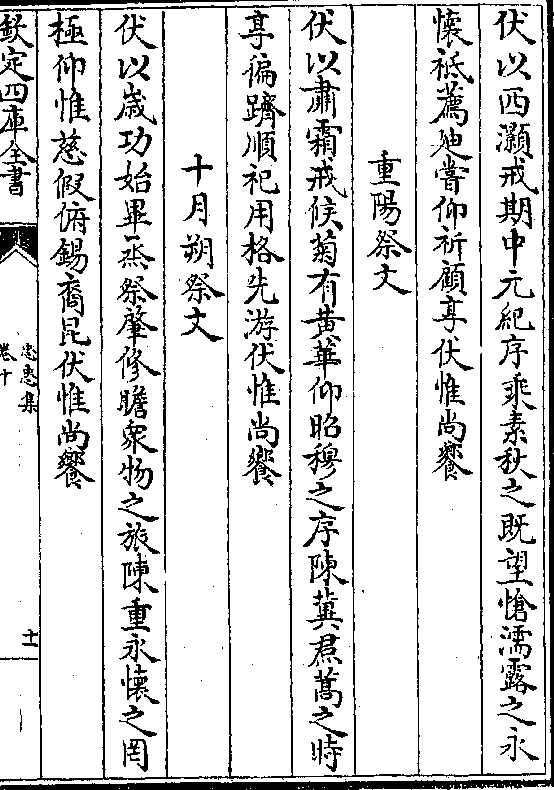 伏以西灝戒期中元紀序乘素秋之既望愴濡露之永
懷祗薦廸嘗仰祈顧享伏惟尚饗
重陽祭文
伏以肅霜戒候菊有黄華仰昭穆之序陳冀焄蒿之時
享徧躋順祀用格先游伏惟尚饗
十月朔祭文
伏以歳功始畢烝祭肇修瞻衆物之旅陳重永懷之罔
極仰惟慈假俯錫裔昆伏惟尚饗
欽定四庫全書
忠惠集
卷十
十一